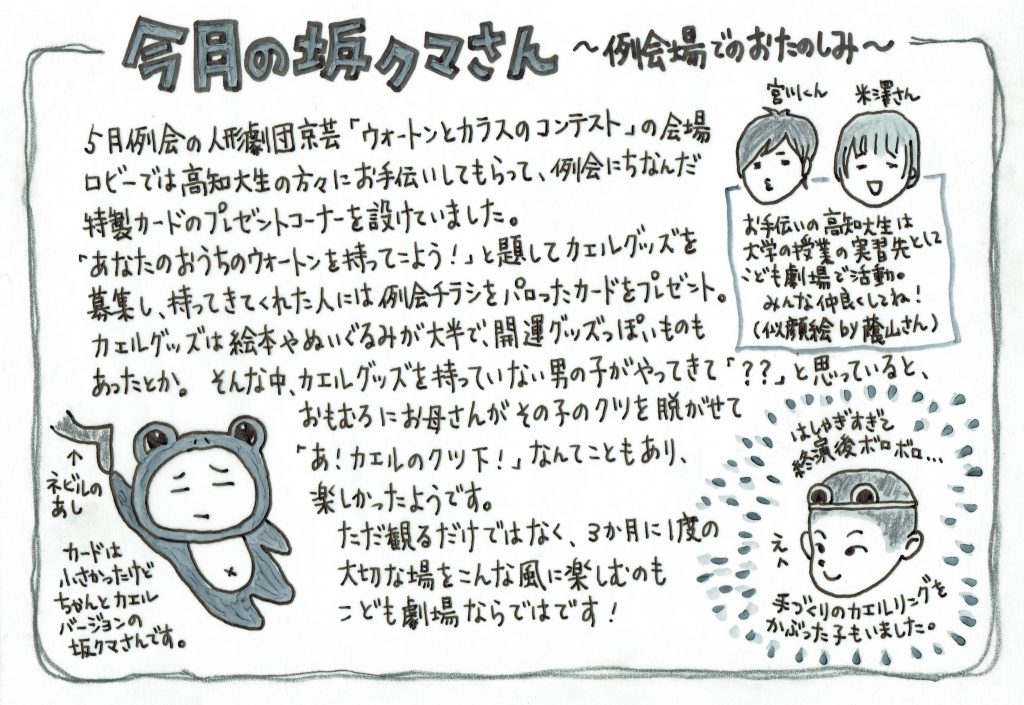 今月の坂クマさん ～例会場でのおたのしみ～
5月例会の人形劇団京芸「ウォートンとカラスのコンテスト」の会場
ロビーでは高知大生の方々にお手伝いしてもらって、例会にちなんだ
特製カードのプレゼントコーナーを設けていました。
「あなたのおうちのウォートンを持ってこよう！」と題してカエルグッズを
募集し、持ってきてくれた人には例会チラシをパロったカードをプレゼント。
カエルグッズは絵本やぬいぐるみが大半で、開運グッズっぽいものも
あったとか。そんな中、カエルグッズを持っていない男の子がやってきて「？？」と思っていると、
おもむろにお母さんがその子のクツを脱がせて
「あ！カエルのクツ下！」なんてこともあり、
楽しかったようです。
ただ観るだけではなく、3か月に1度の
大切な場をこんな風に楽しむのも
こども劇場ならではです！
宮川くん
米澤さん
お手伝いの高知大生は
大学の授業の実習先として
こども劇場で活動。
みんな仲良くしてね！
（似顔絵by蔭山さん）
↑
ネビルの
あし
カードは
小さかったけど
ちゃんとカエル
バージョンの
坂クマさんです。
はしゃぎすぎて
終演後ボロボロ…
え
手づくりのカエルリングを
かぶった子もいました。